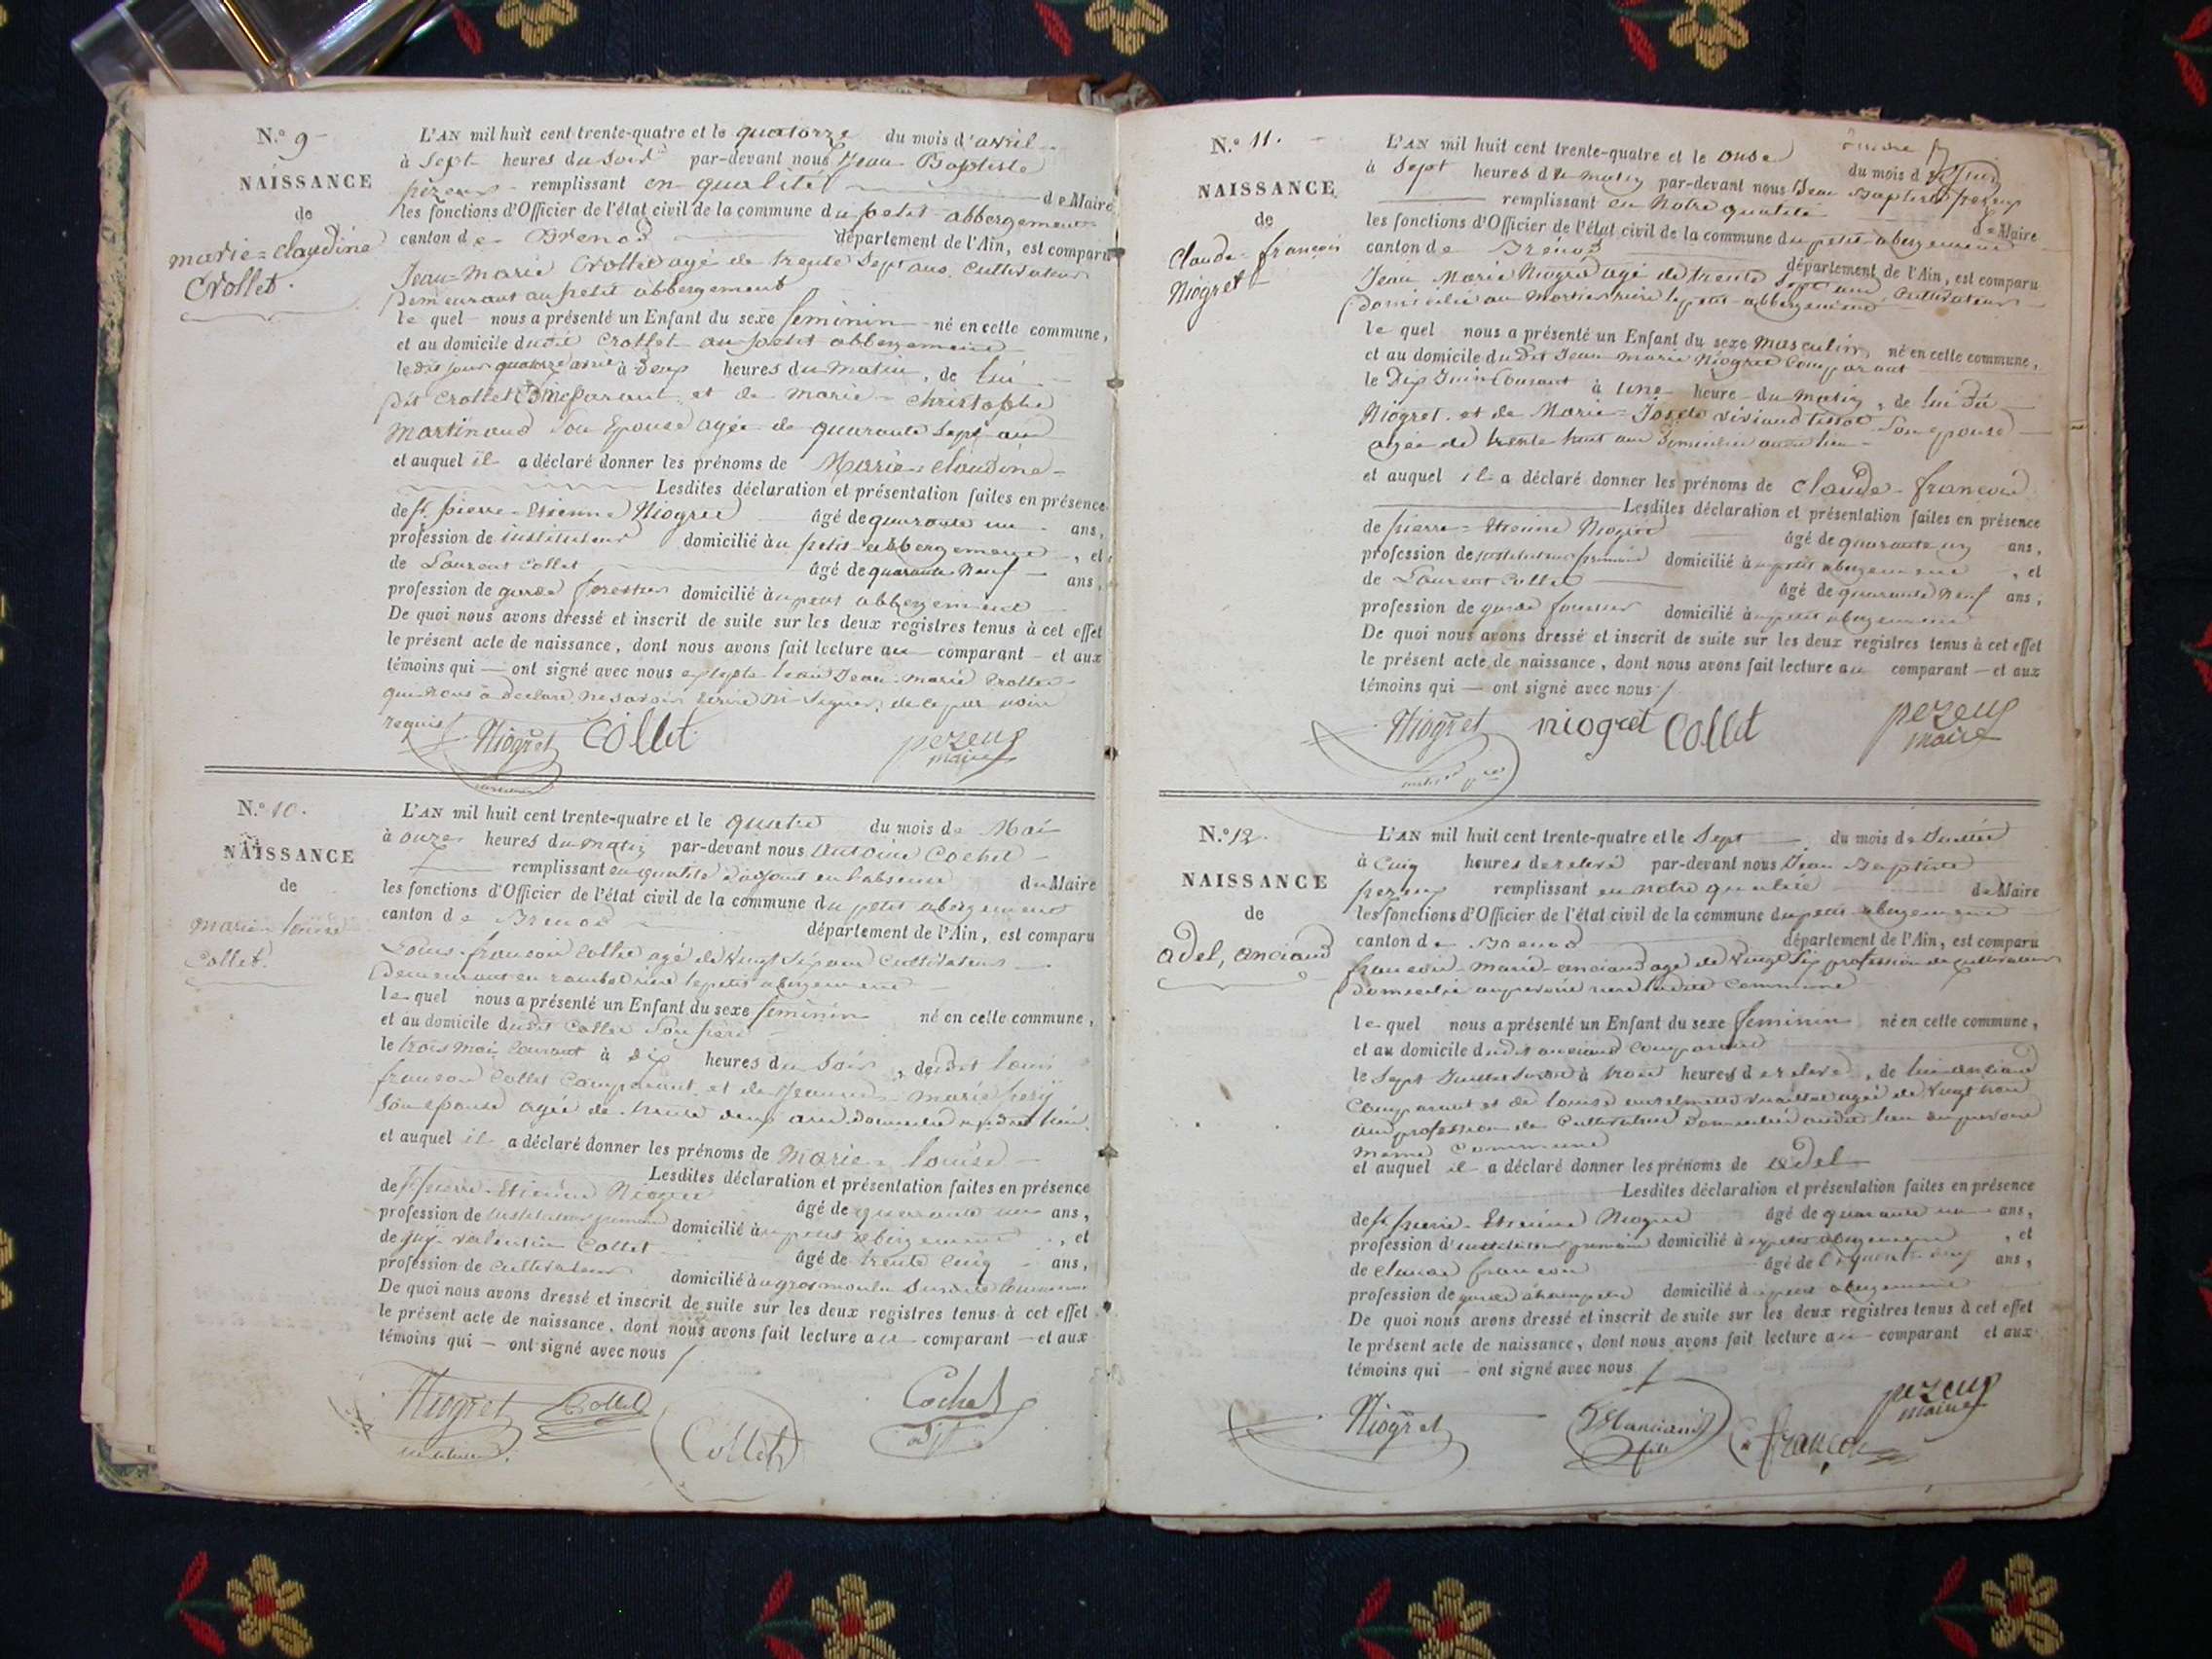 N.º 9
NAISSANCE
de
marie=claudine
Crollet.
L'AN mil huit cent trente-quatre et le quatorze du mois d'avril
à Sept heures du Soir par-devant nous Jean Baptiste
pezeux remplissant en qualité de Maire
les fonctions d'Officier de l'état civil de la commune du petit abbergement
canton de Brenod département de l'Ain, est comparu
Jean=Marie Crollet agé de trente Sept ans Cultivateur
Demeurant au petit abbergement
le quel nous a présenté un Enfant du sexe feminin né en cette commune,
et au domicile dudit Crollet au petit abbergement
ledit jour quatorze avril à Deux heures du Matin, de lui
Dit Crollet Comparant et de Marie christophe
Martinand Son Epouse agée de quarante Sept ans
et auquel il a déclaré donner les prénoms de Marie claudine
Lesdites déclaration et présentation faites en présence
de pierre-Etienne Niogret âgé de quarante un ans,
profession de instituteur domicilié au petit abbergement, et
de Laurent Collet âgé de quarante Neuf ans,
profession de garde forestier domicilié au petit abbergement
De quoi nous avons dressé et inscrit de suite sur les deux registres tenus à cet effet
le présent acte de naissance, dont nous avons fait lecture au comparant et aux
témoins qui ont signé avec nous Jean marie Crollet
qui nous a déclaré ne savoir Ecrire Ni Signer, de ce par nous
requis
Niogret Collet pezeux
maire
N.º 10.
NAISSANCE
de
marie louise
Collet.
L'AN mil huit cent trente-quatre et le quatre du mois de Mai
à onze heures du Matin par-devant nous Antoine Cochet
remplissant en qualité D'adjoint en l'absence du Maire
les fonctions d'Officier de l'état civil de la commune du petit abergement
canton de Brenod département de l'Ain, est comparu
Louis françois Collet agé de Vingt Six ans Cultivateur
Demeurant en petit abergement
le quel nous a présenté un Enfant du sexe feminin né en cette commune,
et au domicile dudit Collet Son père
le trois Mai Courant à dix heures du Soir, dudit louis
françois Collet Comparant et de Jeanne Marie
Son épouse agée de trente deux ans Domiciliée audit lieu
et auquel il a déclaré donner les prénoms de Marie louise
Lesdites déclaration et présentation faites en présence
de pierre-Etienne Niogret âgé de quarante un ans,
profession de instituteur primaire domicilié au petit abergement, et
de Valentin Collet âgé de trente Cinq ans,
profession de Cultivateur domicilié au gros moulin
De quoi nous avons dressé et inscrit de suite sur les deux registres tenus à cet effet
le présent acte de naissance, dont nous avons fait lecture au comparant et aux
témoins qui ont signé avec nous
Niogret Collet Collet Cochet
N.º 11.
NAISSANCE
de
Claude=françois
Niogret
L'AN mil huit cent trente-quatre et le onze du mois de Juin
à Sept heures du matin par-devant nous Jean Baptiste pezeux
remplissant en Notre qualité de Maire
les fonctions d'Officier de l'état civil de la commune du petit abergement
canton de Brénod département de l'Ain, est comparu
Jean Marie Niogret agé de trente Sept ans Cultivateur
Domicilié au petit abbergement
le quel nous a présenté un Enfant du sexe Masculin né en cette commune,
et au domicile dudit Jean marie Niogret Comparant
le Dix Juin Courant à une heure du Matin, de lui Dit
Niogret et de Marie=Josete Viviand Tissot Son épouse
agée de trente huit ans Domiciliée audit lieu
et auquel il a déclaré donner les prénoms de Claude françois
Lesdites déclaration et présentation faites en présence
de pierre=Etienne Niogret âgé de quarante un ans,
profession de instituteur primaire domicilié au petit abergement, et
de Laurent Collet âgé de quarante Neuf ans,
profession de garde forestier domicilié au petit abergement
De quoi nous avons dressé et inscrit de suite sur les deux registres tenus à cet effet
le présent acte de naissance, dont nous avons fait lecture au comparant et aux
témoins qui ont signé avec nous
Niogret niogret Collet pezeux
maire
N.º 12.
NAISSANCE
de
adel, anciand
L'AN mil huit cent trente-quatre et le Sept du mois de Juillet
à Cinq heures de relevé par-devant nous Jean Baptiste
pezeux remplissant en notre qualité de Maire
les fonctions d'Officier de l'état civil de la commune du petit abergement
canton de Brenod département de l'Ain, est comparu
françois marie anciand agé de Vingt Six profession de Cultivateur
Domicilié
le quel nous a présenté un Enfant du sexe feminin né en cette commune,
et au domicile dudit anciand Comparant
le Sept Juillet à trois heures de relevé, de lui anciand
Comparant et de louise agée de Vingt trois
ans profession de Cultivatrice Domiciliée audit lieu
meme Commune
et auquel il a déclaré donner les prénoms de adel
Lesdites déclaration et présentation faites en présence
de pierre-Etienne Niogret âgé de quarante un ans,
profession d'instituteur primaire domicilié au petit abergement, et
de claude françois âgé de ans,
profession de garde champetre domicilié au petit abergement
De quoi nous avons dressé et inscrit de suite sur les deux registres tenus à cet effet
le présent acte de naissance, dont nous avons fait lecture au comparant et aux
témoins qui ont signé avec nous
Niogret françois pezeux
maire